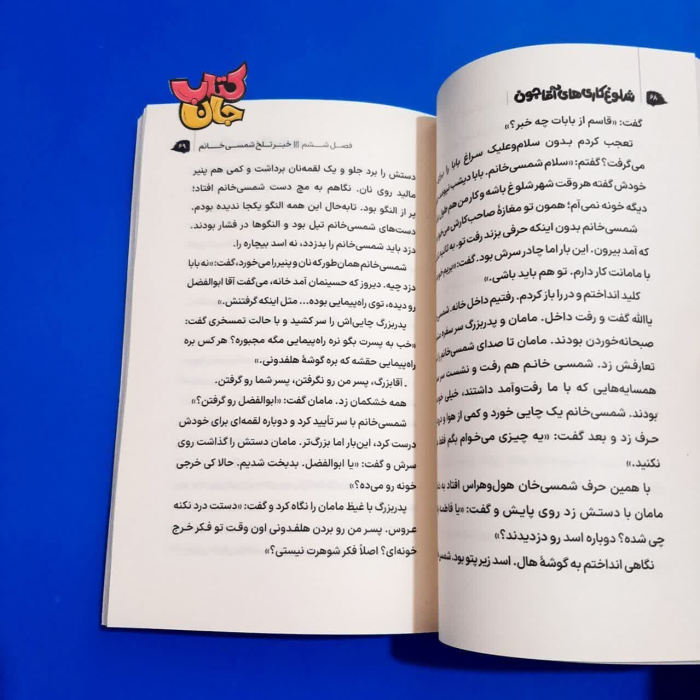 ۶۸ شلوغ‌کاری‌های آقاجون
گفت: «قاسم از بابات چه خبر؟»
تعجب کردم بدون سلام‌وعلیک سراغ بابا را
می‌گرفت؟ گفتم: «سلام شمسی‌خانم. بابا دیشب
خودش گفته هر وقت شهر شلوغ باشه و کار من هم طول
دیگه خونه نمی‌آم؛ همون تو مغازهٔ صاحب‌کارش
شمسی‌خانم بدون اینکه حرفی بزند رفت تو. به ثانیه
که آمد بیرون. این بار اما چادر سرش بود. گفت: «بریم
با مامانت کار دارم. تو هم باید باشی.»
کلید انداختم و در را باز کردم. رفتیم داخل خانه.
یاالله گفت و رفت داخل. مامان و پدربزرگ سر سفره
صبحانه‌خوردن بودند. مامان تا صدای شمسی‌خانم را
تعارفش زد. شمسی خانم هم رفت و نشست سر
همسایه‌هایی که با ما رفت‌وآمد داشتند، خیلی
بودند. شمسی‌خانم یک چایی خورد و کمی از هوا و
حرف زد و بعد گفت: «یه چیزی می‌خوام بگم فقط
نکنید.»
با همین حرف شمسی‌خان هول‌وهراس افتاد به
مامان با دستش زد روی پایش و گفت: «یا فاطمه
چی شده؟ دوباره اسد رو دزدیدند؟»
نگاهی انداختم به گوشهٔ هال. اسد زیر پتو بود.
کتاب جان
فصل ششم ||| خبر تلخ شمسی‌خانم ۶۹
دستش را برد جلو و یک لقمه‌نان برداشت و کمی هم پنیر
مالید روی نان. نگاهم به مچ دست شمسی‌خانم افتاد؛
پر از النگو بود. تابه‌حال این همه النگو یکجا ندیده بودم.
دست‌های شمسی‌خانم تپل بود و النگوها در فشار بودند.
دزد باید شمسی‌خانم را بدزدد، نه اسد بیچاره را.
شمسی‌خانم همان‌طور که نان و پنیر را می‌خورد، گفت: «نه بابا
دزد چیه. دیروز که حسینمان آمد خانه، می‌گفت آقا ابوالفضل
رو دیده، توی راه‌پیمایی بوده... مثل اینکه گرفتنش.»
پدربزرگ چایی‌اش را سر کشید و با حالت تمسخری گفت:
«خب به پسرت بگو نره راه‌پیمایی مگه مجبوره؟ هر کس بره
راه‌پیمایی حقشه که بره گوشهٔ هلفدونی.»
. آقابزرگ، پسر من رو نگرفتن، پسر شما رو گرفتن.
همه خشکمان زد. مامان گفت: «ابوالفضل رو گرفتن؟»
شمسی‌خانم با سر تأیید کرد و دوباره لقمه‌ای برای خودش
درست کرد، این‌بار اما بزرگ‌تر. مامان دستش را گذاشت روی
سرش و گفت: «یا ابوالفضل. بدبخت شدیم. حالا کی خرجی
خونه رو می‌ده؟»
پدربزرگ با غیظ مامان را نگاه کرد و گفت: «دستت درد نکنه
عروس. پسر من رو بردن هلفدونی اون وقت تو فکر خرج
خونه‌ای؟ اصلاً فکر شوهرت نیستی؟»